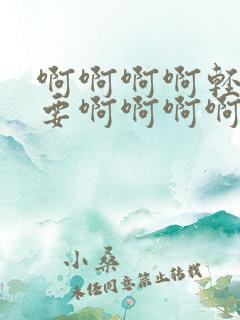 啊啊啊啊輕
要啊啊啊啊
小桑
未经同意禁止转载